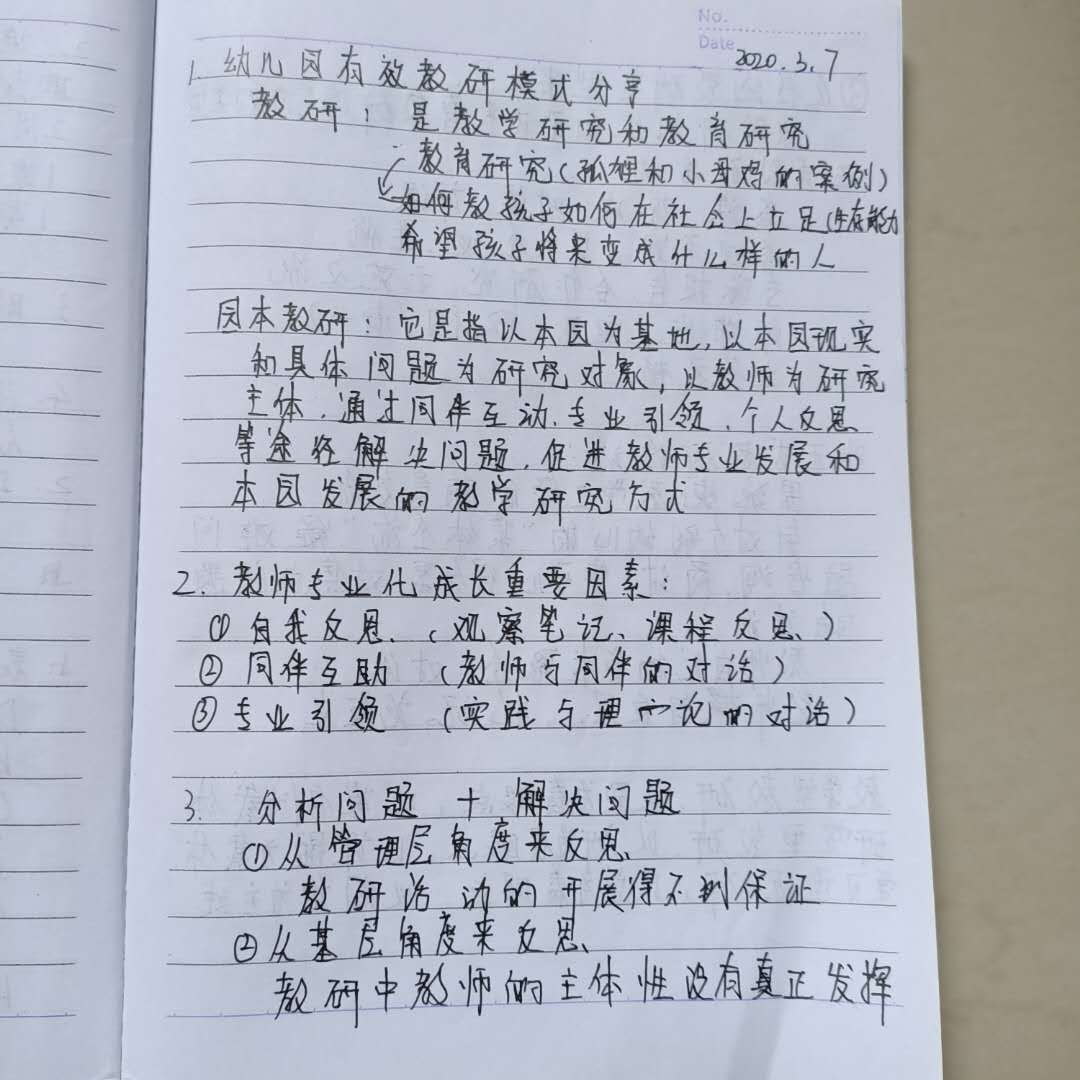 No.
Date 2020.3.7
1. 幼儿园有效教研模式分享
教研：是教学研究和教育研究
教育研究(孤狸和小母鸡的案例)
如何教孩子如何在社会上立足(生存能力
希望孩子将来变成什么样的人
园本教研：它是指以本园为基地,以本园现实
和具体问题为研究对象,以教师为研究
主体.通过同伴互动.专业引领.个人反思
等途径解决问题.促进教师专业发展和
本园发展的教学研究方式
2.教师专业化成长重要因素：
①自我反思.(观察笔记、课程反思、)
②同伴互助 (教师与同伴的对话)
③专业引领 (实践与理论的对话)
3. 分析问题 + 解决问题
①从管理层角度来反思、
教研活动的开展得不到保证
②从基层角度来反思、
教研中教师的主体性没有真正发挥